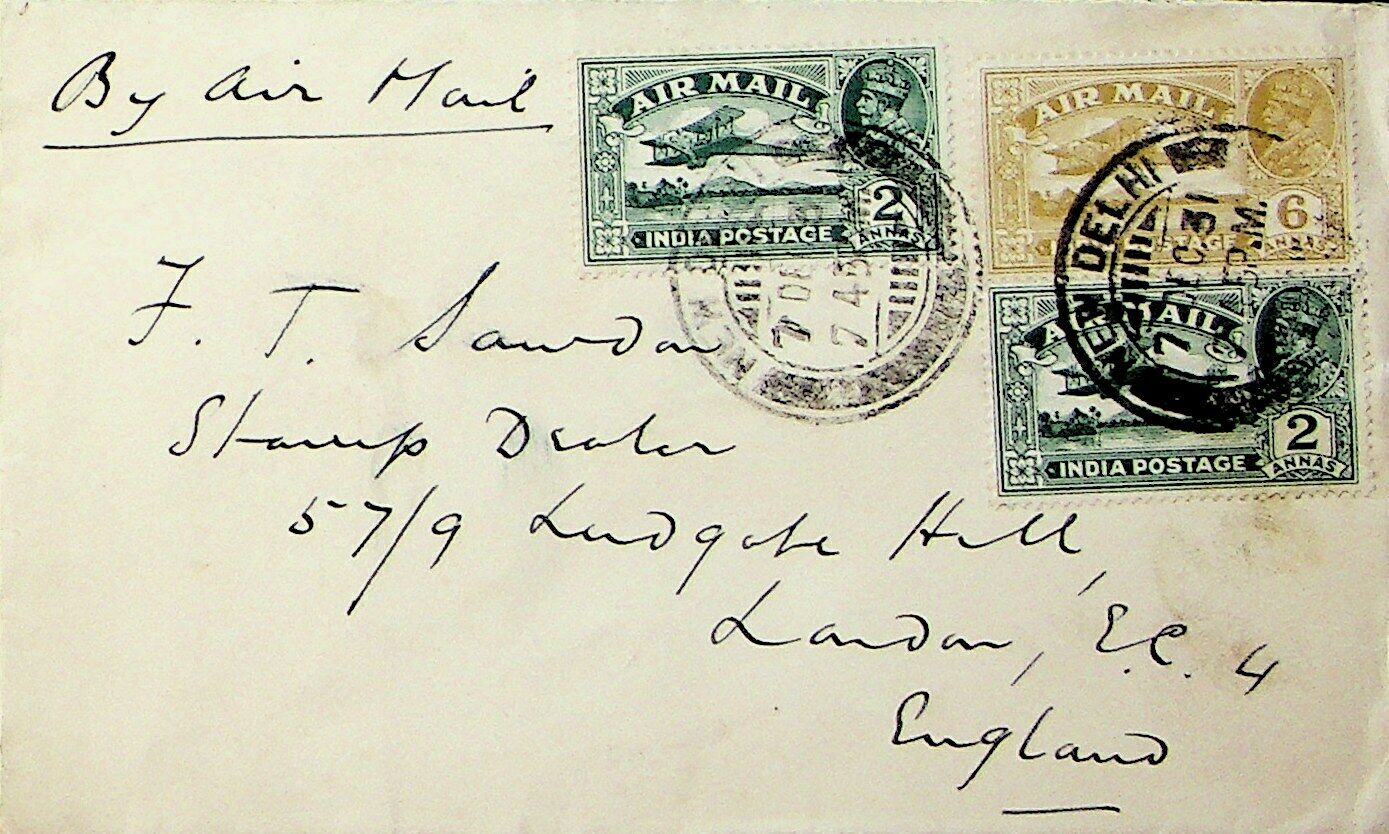 By Air Mail
AIR MAIL
2
ANNAS
INDIA POSTAGE
AIR MAIL
6
ANNAS
AIR MAIL
2
ANNAS
INDIA POSTAGE
NEW DELHI
7 DEC 31
NEW
7 DE
7 45
F. T. Sawdon
Stamp Dealer
57/9 Ludgate Hill,
London, E.C. 4
England